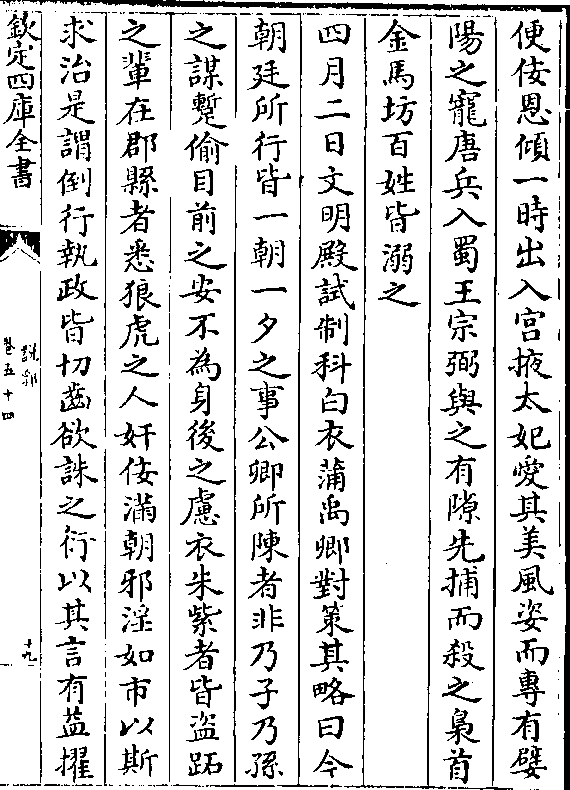 便佞恩傾一時出入宫掖太妃愛其美風姿而專有嬖
陽之寵唐兵入蜀王宗弼與之有隙先捕而殺之梟首
金馬坊百姓皆溺之
四月二日文明殿試制科白衣蒲禹卿對策其略曰今
朝廷所行皆一朝一夕之事公卿所陳者非乃子乃孫
之謀蹔偷目前之安不為身後之慮衣朱紫者皆盜跖
之輩在郡縣者悉狼虎之人奸佞滿朝邪淫如市以斯
求治是謂倒行執政皆切齒欲誅之衍以其言有益擢
欽定四庫全書
說郛
卷五十四
十九